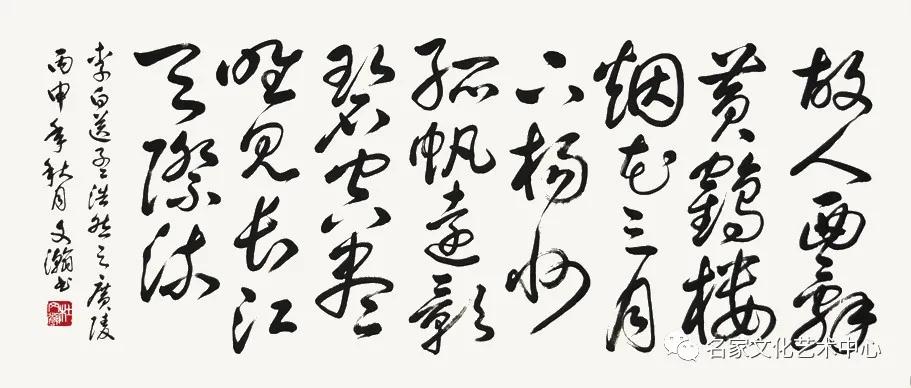 故人西辞
黄鶴楼
烟花三月
下楊州
孤帆遠影
碧空盡
唯見長江
天際流
李白送孟浩然之廣陵
丙申年秋月文瀚书
名家文化艺术中心